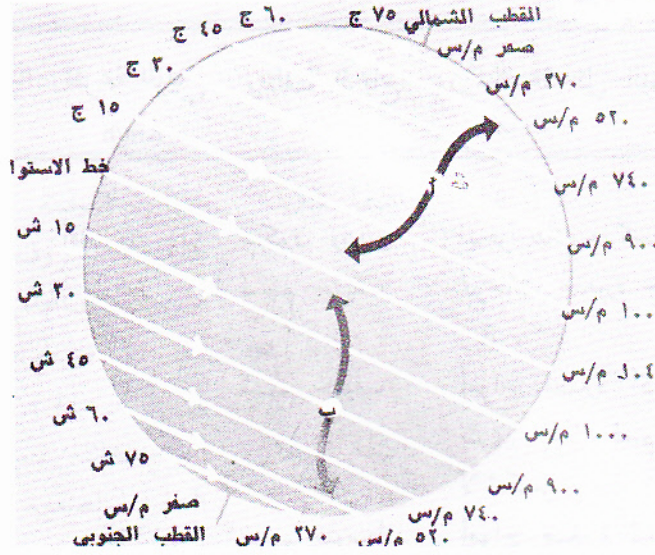 القطب الشمالي
٧٥ ج
٦٠ ج
٤٥ ج
٣٠ ج
١٥ ج
خط الاستوا
١٥ ش
٣٠ ش
٤٥ ش
٦٠ ش
٧٥ ش
صفر م/س
القطب الجنوبي
صفر م/س
٢٧٠ م/س
٥٢٠ م/س
٧٤٠ م/س
٩٠٠ م/س
م/س
م/س
١٠٠٠ م/س
٩٠٠ م/س
٧٤٠ م/س
٥٢٠ م/س
٢٧٠ م/س
أ
ب